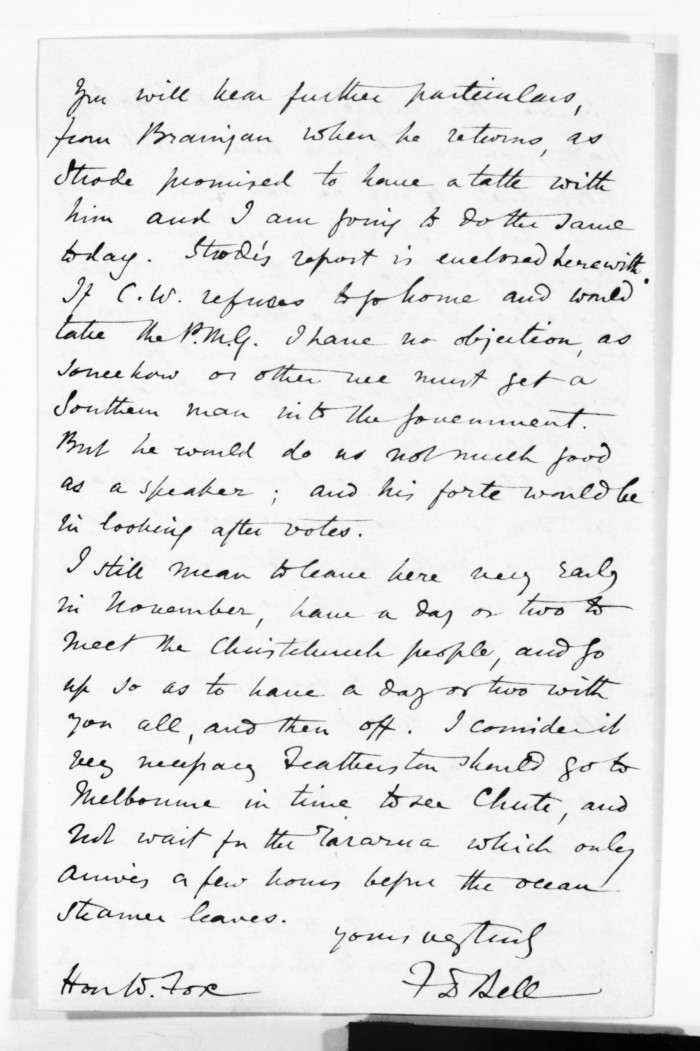 You will hear further particulars,
from Branigan when he returns, as
Strode promised to have a talk with
him and I am going to do the same
today. Strode's report is enclosed herewith.
If C.W. refuses to go home and would
take the P.M.G. I have no objection, as
somehow or other we must get a
Southern man into the Government.
But he would do us not much good
as a speaker; and his forte would be
in looking after votes.
I still mean to leave here very Early
in November, have a day or two to
meet the Christchurch people, and go
up so as to have a day or two with
you all, and then off. I consider it
very necessary Featherston should go to
Melbourne in time to see Chute, and
not wait for the Tararua which only
arrives a few hours before the ocean
steamer leaves.
yours very truly
F D Bell
Hon W. Fox